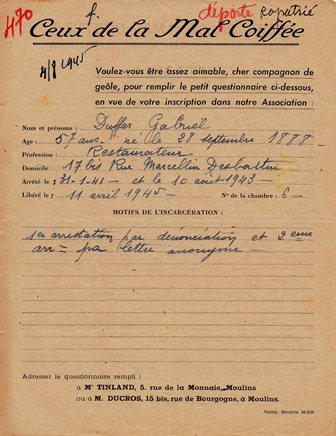 470 f. déporté rapatrié
Ceux de la Mal Coiffée
4/8 1945
Voulez-vous être assez aimable, cher compagnon de
geôle, pour remplir le petit questionnaire ci-dessous,
en vue de votre inscription dans notre Association :
Nom et prénoms : Duffar Gabriel
Age : 57 ans - né le 28 septembre 1888 -
Profession : Restaurateur -
Domicile : 17 bis Rue Marcellin Desboutin
Arrêté le : 31-1-41 - et le 10 août 1943 -
Libéré le : 11 avril 1945 N° de la chambre : 6 -
MOTIFS DE L'INCARCÉRATION :
1er arrestation par dénonciation et 2eme
arr = par lettre anonyme -
Adresser le questionnaire rempli :
à Mr TINLAND, 5. rue de la Monnaie, Moulins
ou à M. DUCROS, 15 bis, rue de Bourgogne, à Moulins.
Moulins